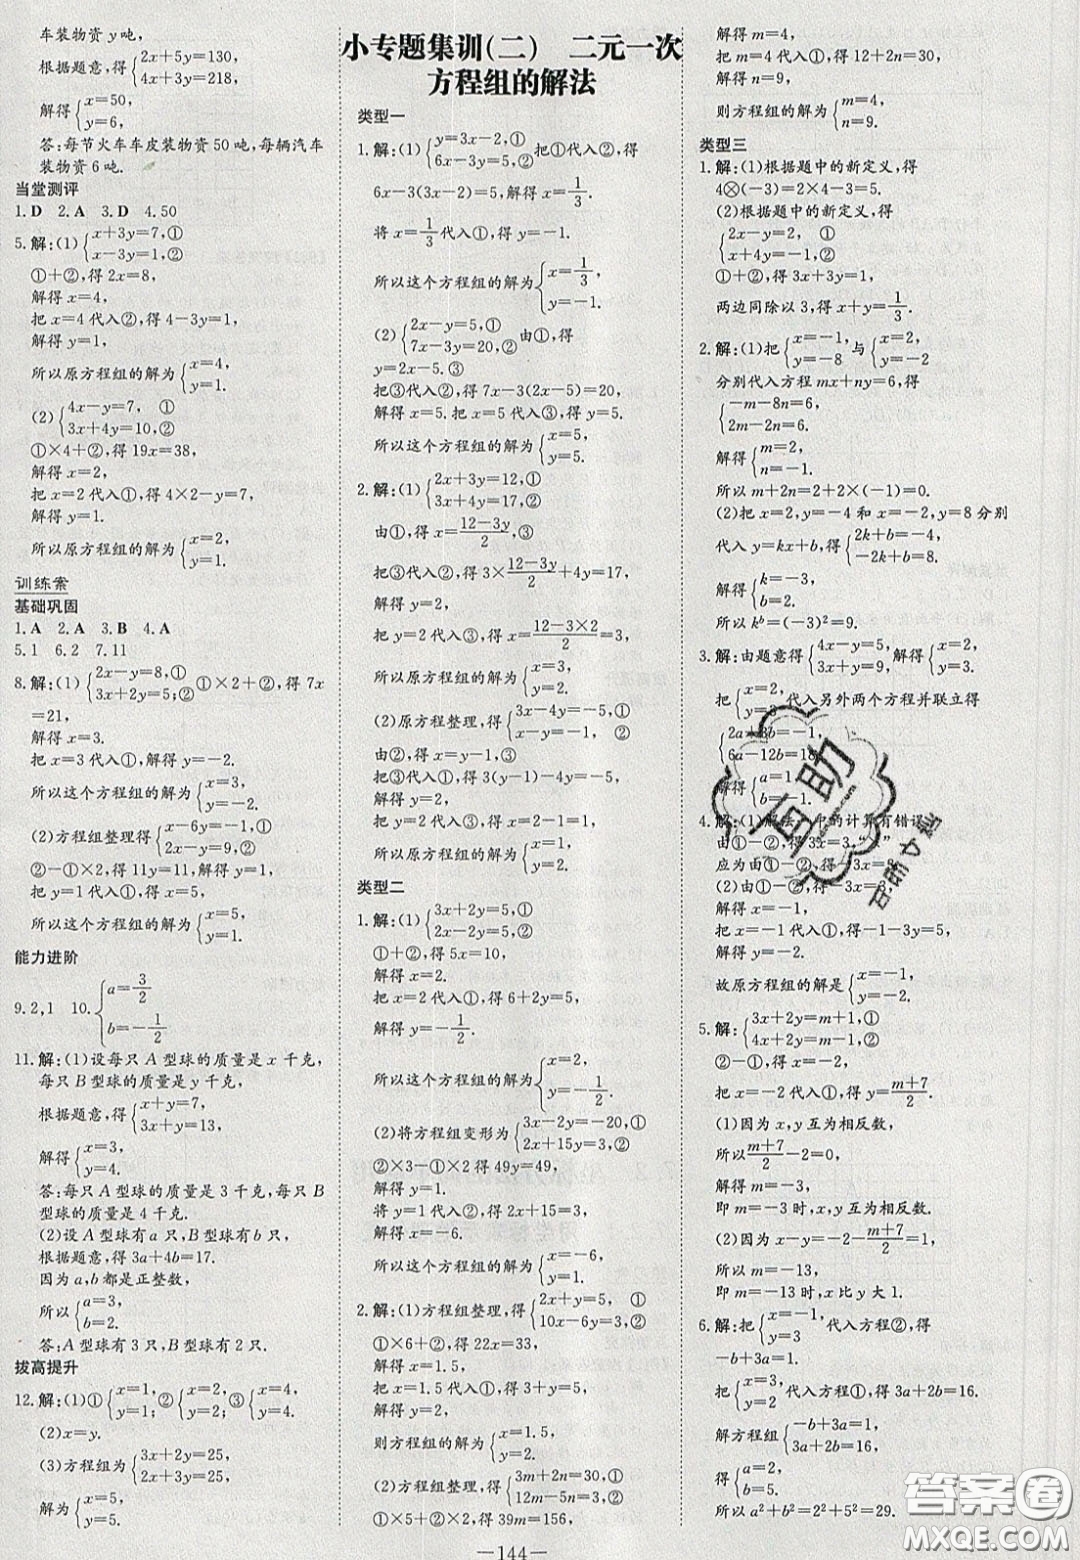 车装物资 y 吨.
根据题意,得{2x+5y=130, 4x+3y=218,
解得{x=50, y=6,
答:每节火车车皮装物资 50 吨,每辆汽车
装物资 6 吨.
当堂测评
1. D 2. A 3. D 4. 50
5. 解:(1){x+3y=7,① x-3y=1,②
①+②,得 2x=8,
解得 x=4,
把 x=4 代入②,得 4-3y=1,
解得 y=1,
所以原方程组的解为{x=4, y=1.
(2){4x-y=7, ① 3x+4y=10,②
①×4+②,得 19x=38,
解得 x=2,
把 x=2 代入①,得 4×2-y=7,
解得 y=1.
所以原方程组的解为{x=2, y=1.
训练案
基础巩固
1. A 2. A 3. B 4. A
5. 1 6. 2 7. 11
8. 解:(1){2x-y=8,① 3x+2y=5;②①×2+②,得 7x
=21,
解得 x=3.
把 x=3 代入①,得 y=-2.
所以这个方程组的解为{x=3, y=-2.
(2)方程组整理得{x-6y=-1,① 2x-y=9,②
②-①,得 11y=11,解得 y=1.
把 y=1 代入①,得 x=5.
所以这个方程组的解为{x=5, y=1.
能力进阶
9. 2,1 10. {a=3/2 b=-1/2
11. 解:(1)设每只 A 型球的质量是 x 千克,
每只 B 型球的质量是 y 千克,
根据题意,得{x+y=7, 3x+y=13,
解得{x=3, y=4.
答:每只 A 型球的质量是 3 千克,每只 B
型球的质量是 4 千克.
(2)设 A 型球有 a 只,B 型球有 b 只,
根据题意,得 3a+4b=17.
因为 a,b 都是正整数,
所以{a=3, b=2.
答:A 型球有 3 只,B 型球有 2 只.
拔高提升
12. 解:(1)①{x=1, y=1; ②{x=2, y=2; ③{x=4, y=4.
(2)x=y.
(3)方程组为{3x+2y=25, 2x+3y=25,
解为{x=5, y=5.
小专题集训(二) 二元一次
方程组的解法
类型一
1. 解:(1){y=3x-2,① 6x-3y=5,②把①代入②,得
6x-3(3x-2)=5,解得 x=1/3.
将 x=1/3代入①,解得 y=-1.
所以这个方程组的解为{x=1/3, y=-1.
(2){2x-y=5,① 7x-3y=20,②由①,得
y=2x-5.③
把③代入②,得 7x-3(2x-5)=20,
解得 x=5.把 x=5 代入③,得 y=5.
所以这个方程组的解为{x=5, y=5.
2. 解:(1){2x+3y=12,① 3x+4y=17,②
由①,得 x=(12-3y)/2,③
把③代入②,得 3×(12-3y)/2+4y=17,
解得 y=2,
把 y=2 代入③,得 x=(12-3×2)/2=3,
所以这个方程组的解为{x=3, y=2.
(2)原方程整理,得{3x-4y=-5,① x-y=-1, ②
由②,得 x=y-1,③
把③代入①,得 3(y-1)-4y=-5,
解得 y=2.
把 y=2 代入③,得 x=2-1=1,
所以这个方程组的解为{x=1, y=2.
类型二
1. 解:(1){3x+2y=5,① 2x-2y=5,②
①+②,得 5x=10,
解得 x=2.
把 x=2 代入①,得 6+2y=5,
解得 y=-1/2.
所以这个方程组的解为{x=2, y=-1/2.
(2)将方程组变形为{3x-2y=-20,① 2x+15y=3,②
②×3-①×2,得 49y=49,
解得 y=1.
将 y=1 代入①,得 3x-2=-20,
解得 x=-6.
所以这个方程组的解为{x=-6, y=1.
2. 解:(1)方程组整理,得{2x+y=5, ① 10x-6y=3,②
①×6+②,得 22x=33,
解得 x=1.5,
把 x=1.5 代入①,得 3+y=5,
解得 y=2,
则方程组的解为{x=1.5, y=2.
(2)方程组整理,得{3m+2n=30,① 12m-5n=3,②
①×5+②×2,得 39m=156,
解得 m=4,
把 m=4 代入①,得 12+2n=30,
解得 n=9,
则方程组的解为{m=4, n=9.
类型三
1. 解:(1)根据题中的新定义,得
4⊗(-3)=2×4-3=5.
(2)根据题中的新定义,得
{2x-y=2,① x+4y=-1,②
①+②,得 3x+3y=1,
两边同除以 3,得 x+y=1/3.
2. 解:(1)把{x=-1, y=-8与{x=2, y=-2
分别代入方程 mx+ny=6,得
{-m-8n=6, 2m-2n=6.
解得{m=2, n=-1.
所以 m+2n=2+2×(-1)=0.
(2)把 x=2,y=-4 和 x=-2,y=8 分别
代入 y=kx+b,得{2k+b=-4, -2k+b=8.
解得{k=-3, b=2.
所以 kᵇ=(-3)²=9.
3. 解:由题意得{4x-y=5, 3x+y=9,解得{x=2, y=3.
把{x=2, y=3代入另外两个方程并联立得
{2a+3b=-1, 6a-12b=18,
解得{a=1, b=-1.
4. 解:(1)解法 中的计算有错误
由①-②,得-3x=3,“ ”
应为由①-②,
(2)由①-②,得-3x=3,
解得 x=-1,
把 x=-1 代入①,得-1-3y=5,
解得 y=-2.
故原方程组的解是{x=-1, y=-2.
5. 解:{3x+2y=m+1,① 4x+2y=m-1,②
②-①,得 x=-2.
把 x=-2 代入①,得 y=(m+7)/2.
(1)因为 x,y 互为相反数,
所以(m+7)/2=2,
解得 m=-3.
即 m=-3 时,x,y 互为相反数.
(2)因为 x-y=-2-(m+7)/2=1,
所以 m=-13,
即 m=-13 时,x 比 y 大 1.
6. 解:把{x=-1, y=3代入方程②,得
-b+3a=-1.
把{x=3, y=2代入方程①,得 3a+2b=16.
解方程组{-b+3a=-1, 3a+2b=16,
得{a=2, b=5.
所以 a²+b²=2²+5²=29.
互助
答案圈
MXQE.COM
—144—